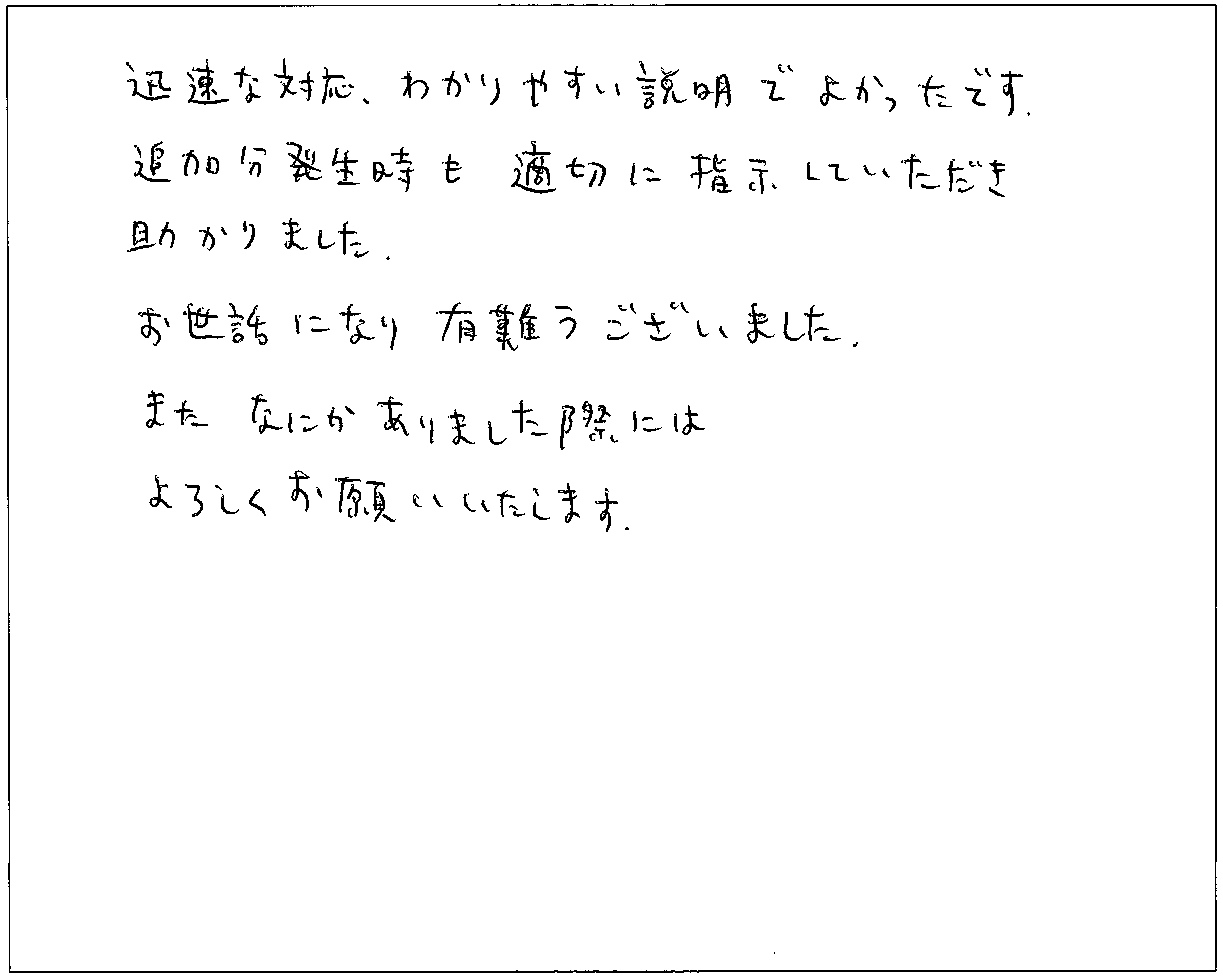 迅速な対応、わかりやすい説明でよかったです.
追加分発生時も 適切に指示していただき
助かりました.
お世話になり 有難うございました.
また なにかありました際には
よろしくお願いいたします.